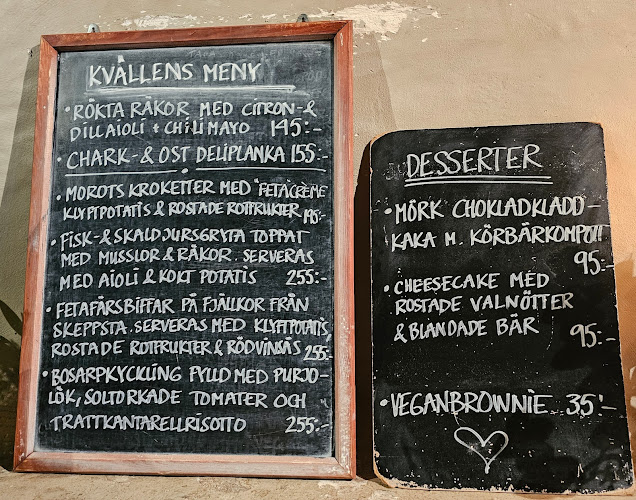 KVÄLLENS MENY
• RÖKTA RÄKOR MED CITRON- &
DILLAIOLI + CHILIMAYO 145:-
• CHARK- & OST DELIPLANKA 155:-
• MOROTS KROKETTER MED FETACRÈME
KLYFTPOTATIS & ROSTADE ROTFRUKTER 195:-
• FISK- & SKALDJURSGRYTA TOPPAT
MED MUSSLOR & RÄKOR. SERVERAS
MED AIOLI & KOKT POTATIS 255:-
• FETAFÄRSBIFFAR PÅ FJÄLLKOR FRÅN
SKEPPSTA. SERVERAS MED KLYFTPOTATIS
ROSTADE ROTFRUKTER & RÖDVINSÅS 255:-
• BOSARPKYCKLING FYLLD MED PURJO-
LÖK, SOLTORKADE TOMATER OCH
TRATTKANTARELLRISOTTO 255:-
DESSERTER
• MÖRK CHOKLADKLADD-
KAKA M. KÖRBÄRKOMPOTT
95:-
• CHEESECAKE MED
ROSTADE VALNÖTTER
& BLANDADE BÄR 95:-
• VEGANBROWNIE 35:-